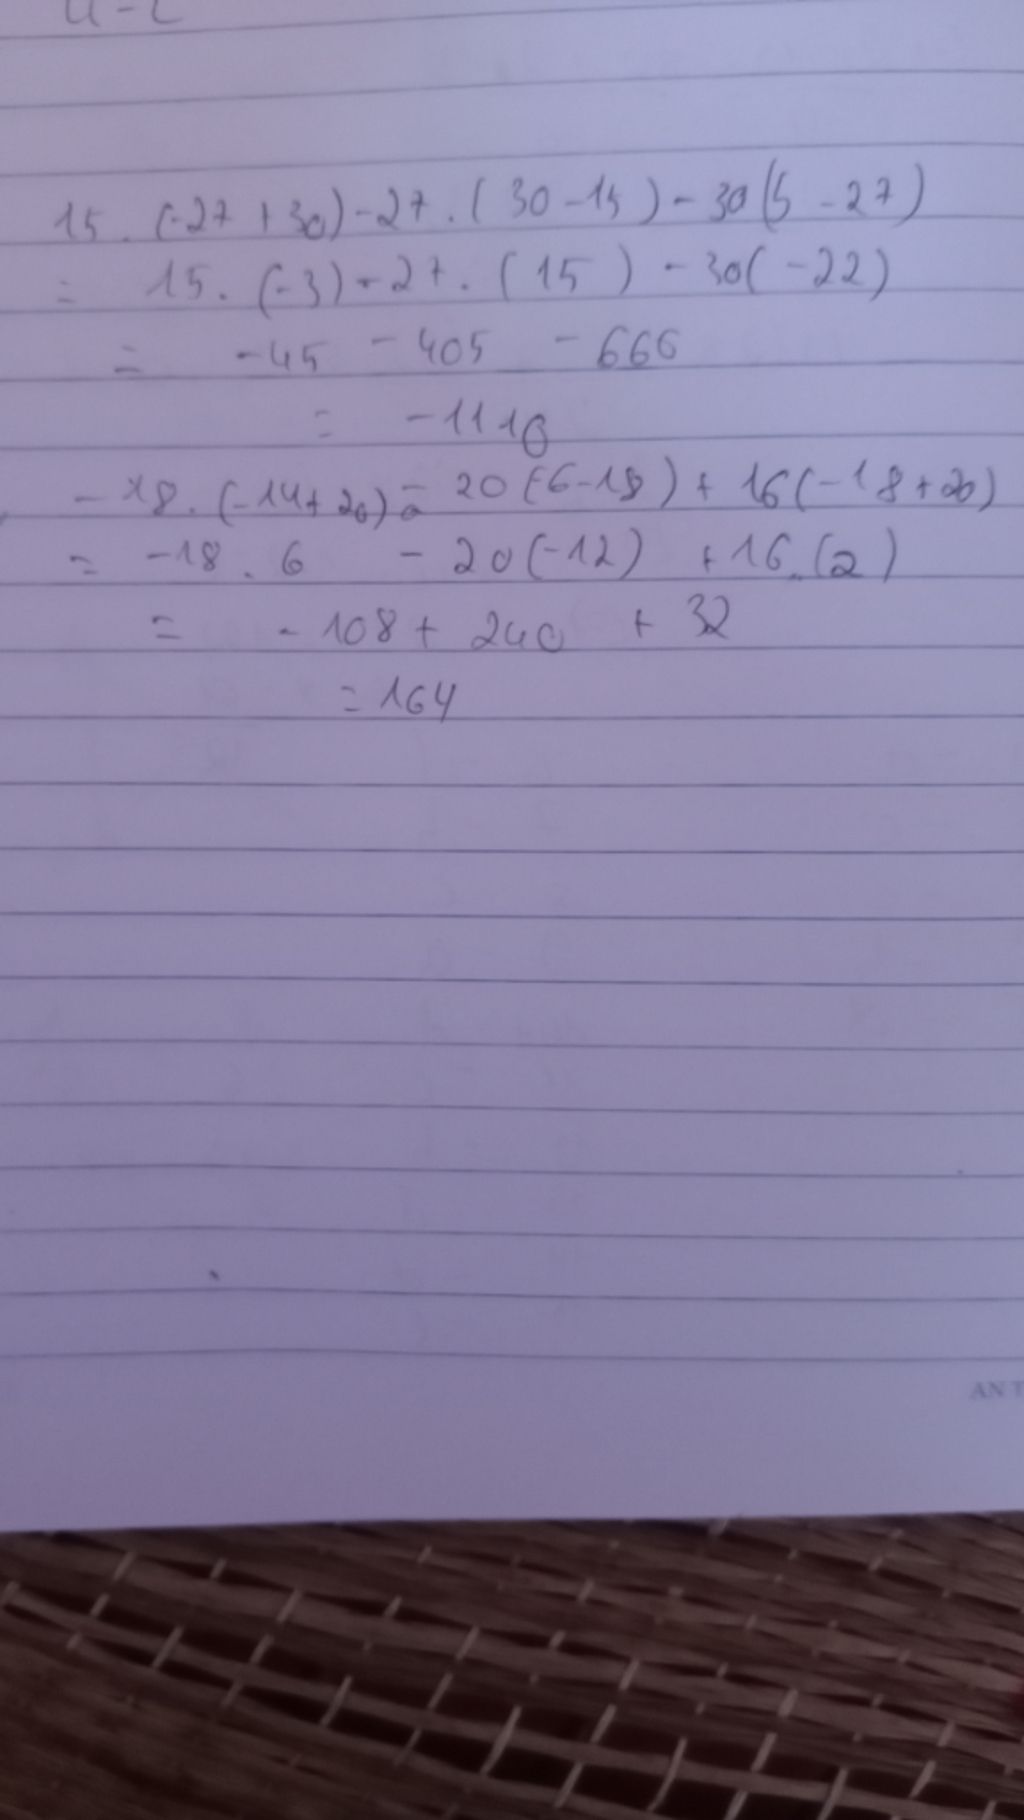 15. (-27 +30) - 27 . ( 30 - 15 ) - 30 (5 - 27 )
= 15. (-3) - 27. ( 15 ) - 30( -22)
= -45 - 405 - 666
= -1116
- 18. (-14+20) - 20 (6-18) + 16 (-18+20)
= -18 . 6 - 20 (-12) + 16. (2)
= - 108 + 240 + 32
= 164
AN T